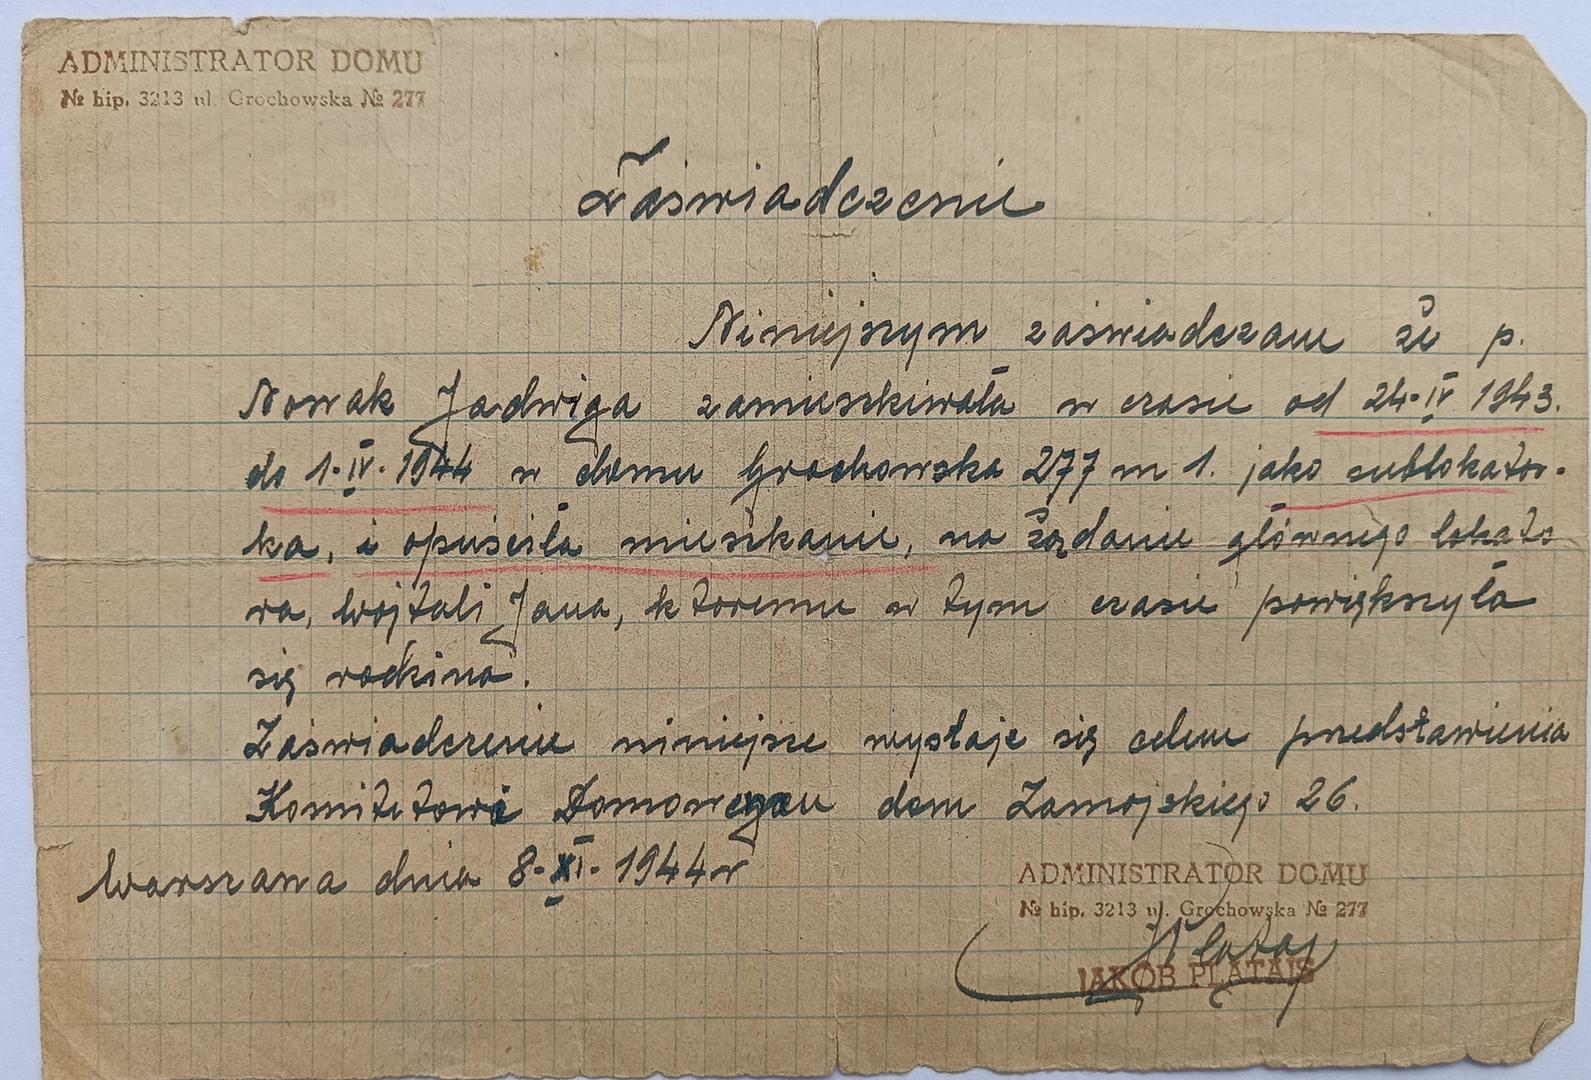 ADMINISTRATOR DOMU
№ hip. 3213 ul. Grochowska № 277
Zaświadczenie
Niniejszym zaświadczam że p.
Nowak Jadwiga zamieszkiwała w czasie od 24-IV 1943.
do 1-IV-1944 w domu Grochowska 277 m 1. jako sublokator-
ka, i opuściła mieszkanie, na żądanie głównego lokato
ra, Wojtali Jana, ktoremu w tym czasie powiększyła
się rodzina.
Zaświadczenie niniejsze wystaje się celem przedstawienia
Komitetowi dom Zamojskiego 26.
Warszawa dnia 8-XI-1944 r
ADMINISTRATOR DOMU
№ hip. 3213 ul. Grochowska № 277
JAKÓB PLATAIS